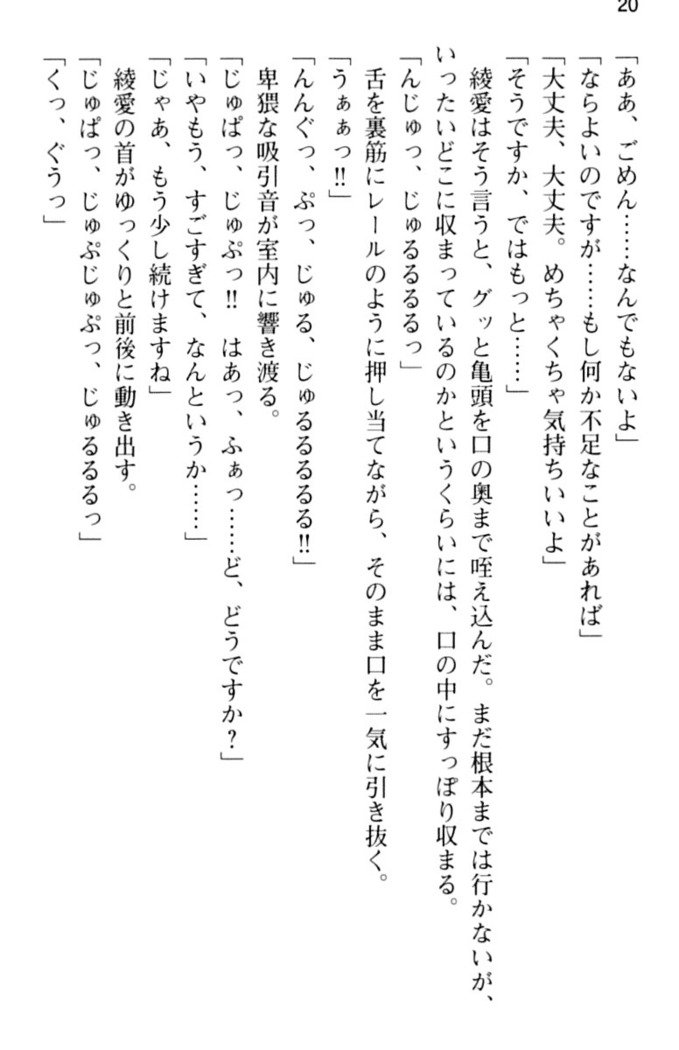 20
「ああ、ごめん……なんでもないよ」
「ならよいのですが……もし何か不足なことがあれば」
「大丈夫、大丈夫。めちゃくちゃ気持ちいいよ」
「そうですか、ではもっと……」
　綾愛はそう言うと、グッと亀頭を口の奥まで咥え込んだ。まだ根本までは行かないが、
いったいどこに収まっているのかというくらいには、口の中にすっぽり収まる。
「んじゅっ、じゅるるるるっ」
　舌を裏筋にレールのように押し当てながら、そのまま口を一気に引き抜く。
「うぁぁっ!!」
「んんぐっ、ぷっ、じゅる、じゅるるるるる!!」
　卑猥な吸引音が室内に響き渡る。
「じゅぱっ、じゅぷっ!!　はあっ、ふぁっ……ど、どうですか？」
「いやもう、すごすぎて、なんというか……」
「じゃあ、もう少し続けますね」
　綾愛の首がゆっくりと前後に動き出す。
「じゅぱっ、じゅぷじゅぷっ、じゅるるるっ」
「くっ、ぐうっ」